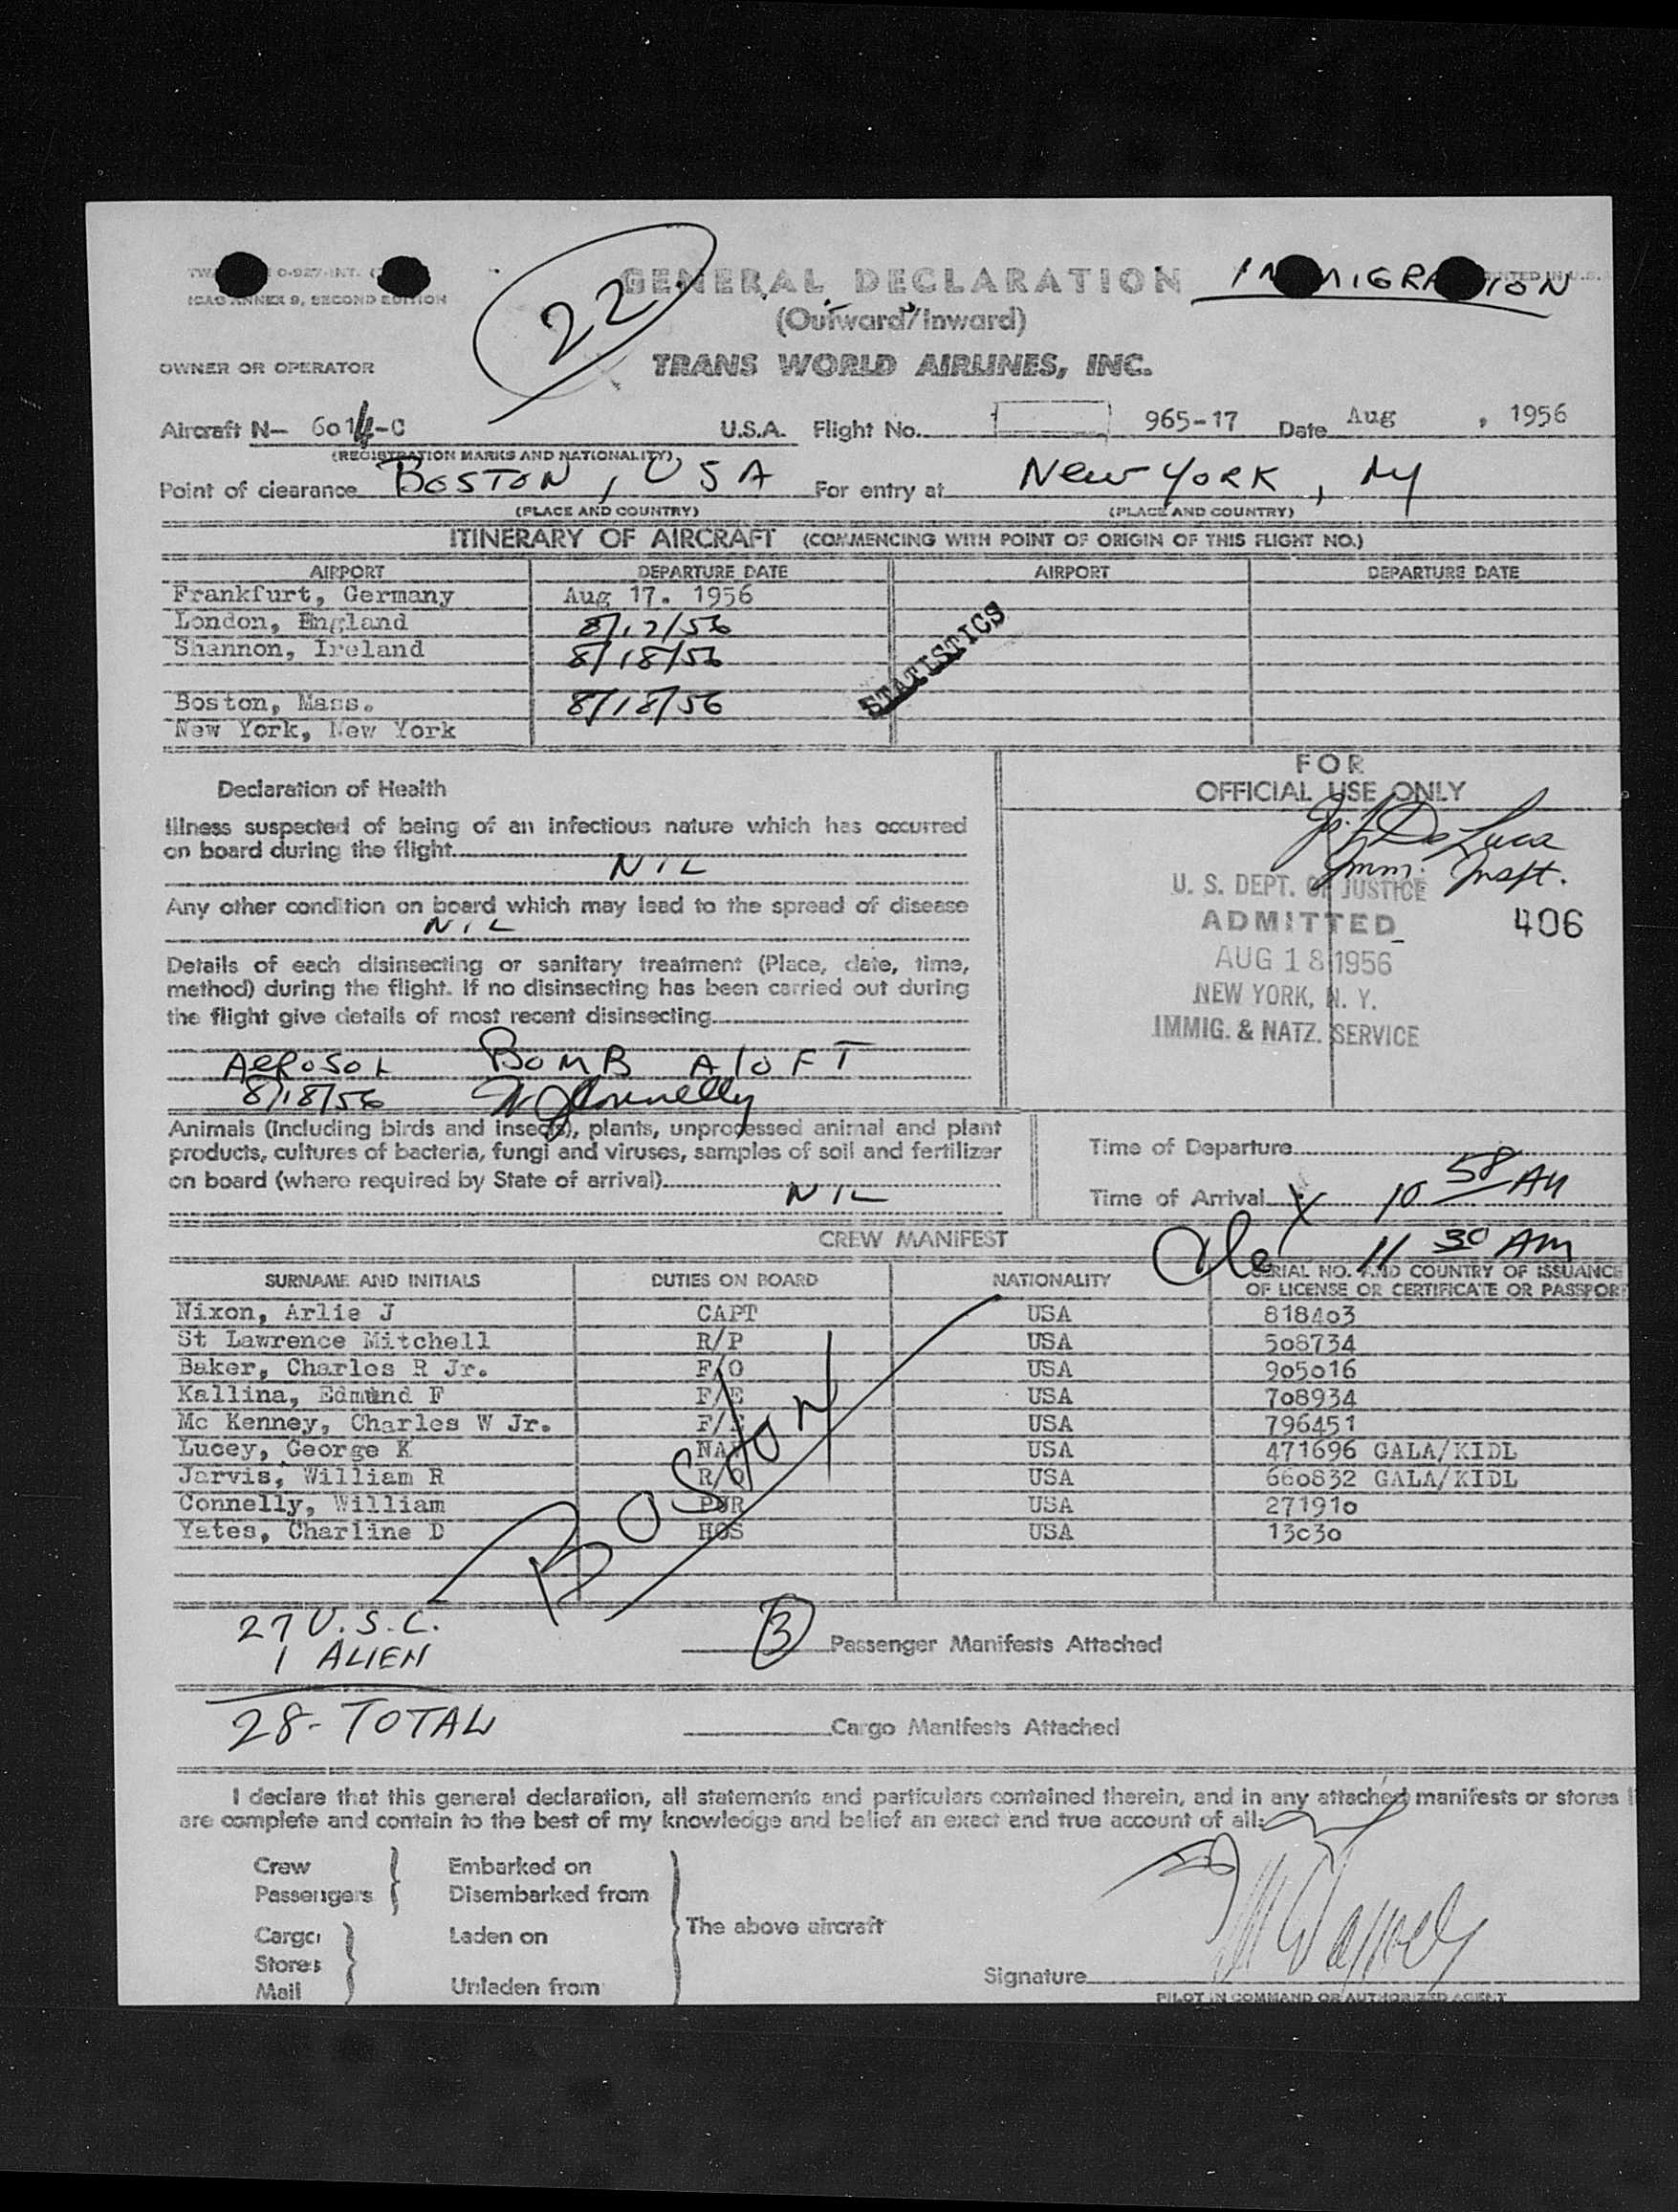 ICAO ANNEX 9, SECOND EDITION
22
GENERAL DECLARATION
IMMIGRATION
(Outward/Inward)
OWNER OR OPERATOR
TRANS WORLD AIRLINES, INC.
Aircraft N- 6014-C U.S.A. Flight No. 965-17 Date Aug , 1956
(REGISTRATION MARKS AND NATIONALITY)
Point of clearance BOSTON, USA For entry at New YORK, NY
(PLACE AND COUNTRY) (PLACE AND COUNTRY)
ITINERARY OF AIRCRAFT (COMMENCING WITH POINT OF ORIGIN OF THIS FLIGHT NO.)
AIRPORT DEPARTURE DATE AIRPORT DEPARTURE DATE
Frankfurt, Germany Aug 17. 1956
London, England 8/17/56
Shannon, Ireland 8/18/56
STATISTICS
Boston, Mass. 8/18/56
New York, New York
FOR
OFFICIAL USE ONLY
De Luca
Imm. Inspt.
U. S. DEPT. OF JUSTICE
ADMITTED 406
AUG 18 1956
NEW YORK, N. Y.
IMMIG. & NATZ. SERVICE
Declaration of Health
Illness suspected of being of an infectious nature which has occurred
on board during the flight
NIL
Any other condition on board which may lead to the spread of disease
NIL
Details of each disinsecting or sanitary treatment (Place, date, time,
method) during the flight. If no disinsecting has been carried out during
the flight give details of most recent disinsecting
AEROSOL BOMB ALOFT
8/18/56 W J Connelly
Animals (including birds and insects), plants, unprocessed animal and plant
products, cultures of bacteria, fungi and viruses, samples of soil and fertilizer
on board (where required by State of arrival) NIL
Time of Departure
Time of Arrival 10 58 AM
11 30 AM
CREW MANIFEST
SURNAME AND INITIALS DUTIES ON BOARD NATIONALITY SERIAL NO. AND COUNTRY OF ISSUANCE
OF LICENSE OR CERTIFICATE OR PASSPOR
Nixon, Arlie J CAPT USA 818403
St Lawrence Mitchell R/P USA 508734
Baker, Charles R Jr. F/O USA 905016
Kallina, Edmund F F/E USA 708934
Mc Kenney, Charles W Jr. F/E USA 796451
Lucey, George K NAV USA 471696 GALA/KIDL
Jarvis, William R R/O USA 660832 GALA/KIDL
Connelly, William PUR USA 271910
Yates, Charline D HOS USA 13030
BOSTON
27 U.S.C.
1 ALIEN
3 Passenger Manifests Attached
28- TOTAL
Cargo Manifests Attached
I declare that this general declaration, all statements and particulars contained therein, and in any attached manifests or stores
are complete and contain to the best of my knowledge and belief an exact and true account of all:
Crew Embarked on
Passengers Disembarked from
The above aircraft
Cargo Laden on
Stores
Mail Unladen from
Signature
PILOT IN COMMAND OR AUTHORIZED AGENT